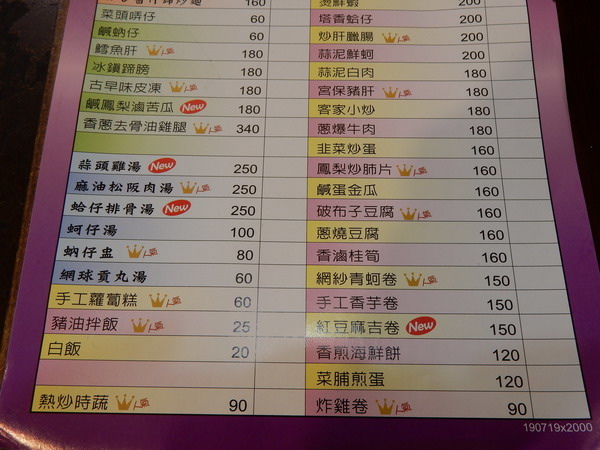 160
菜頭哢仔 60
鹹蚋仔 60
鱈魚肝 人氣 180
冰鎮蹄膀 180
古早味皮凍 人氣 180
鹹鳳梨滷苦瓜 New 180
香蔥去骨油雞腿 人氣 340
蒜頭雞湯 New 250
麻油松阪肉湯 人氣 250
蛤仔排骨湯 New 250
蚵仔湯 100
蚋仔盅 人氣 80
網球貢丸湯 60
手工蘿蔔糕 人氣 60
豬油拌飯 人氣 25
白飯 20
熱炒時蔬 人氣 90
200
塔香蛤仔 200
炒肝臘腸 人氣 200
蒜泥鮮蚵 200
蒜泥白肉 180
宮保豬肝 人氣 180
客家小炒 180
蔥爆牛肉 180
韭菜炒蛋 160
鳳梨炒肺片 人氣 160
鹹蛋金瓜 160
破布子豆腐 人氣 160
蔥燒豆腐 160
香滷桂筍 160
網紗青蚵卷 人氣 150
手工香芋卷 150
紅豆麻吉卷 New 150
香煎海鮮餅 120
菜脯煎蛋 120
炸雞卷 人氣 90
190719x2000